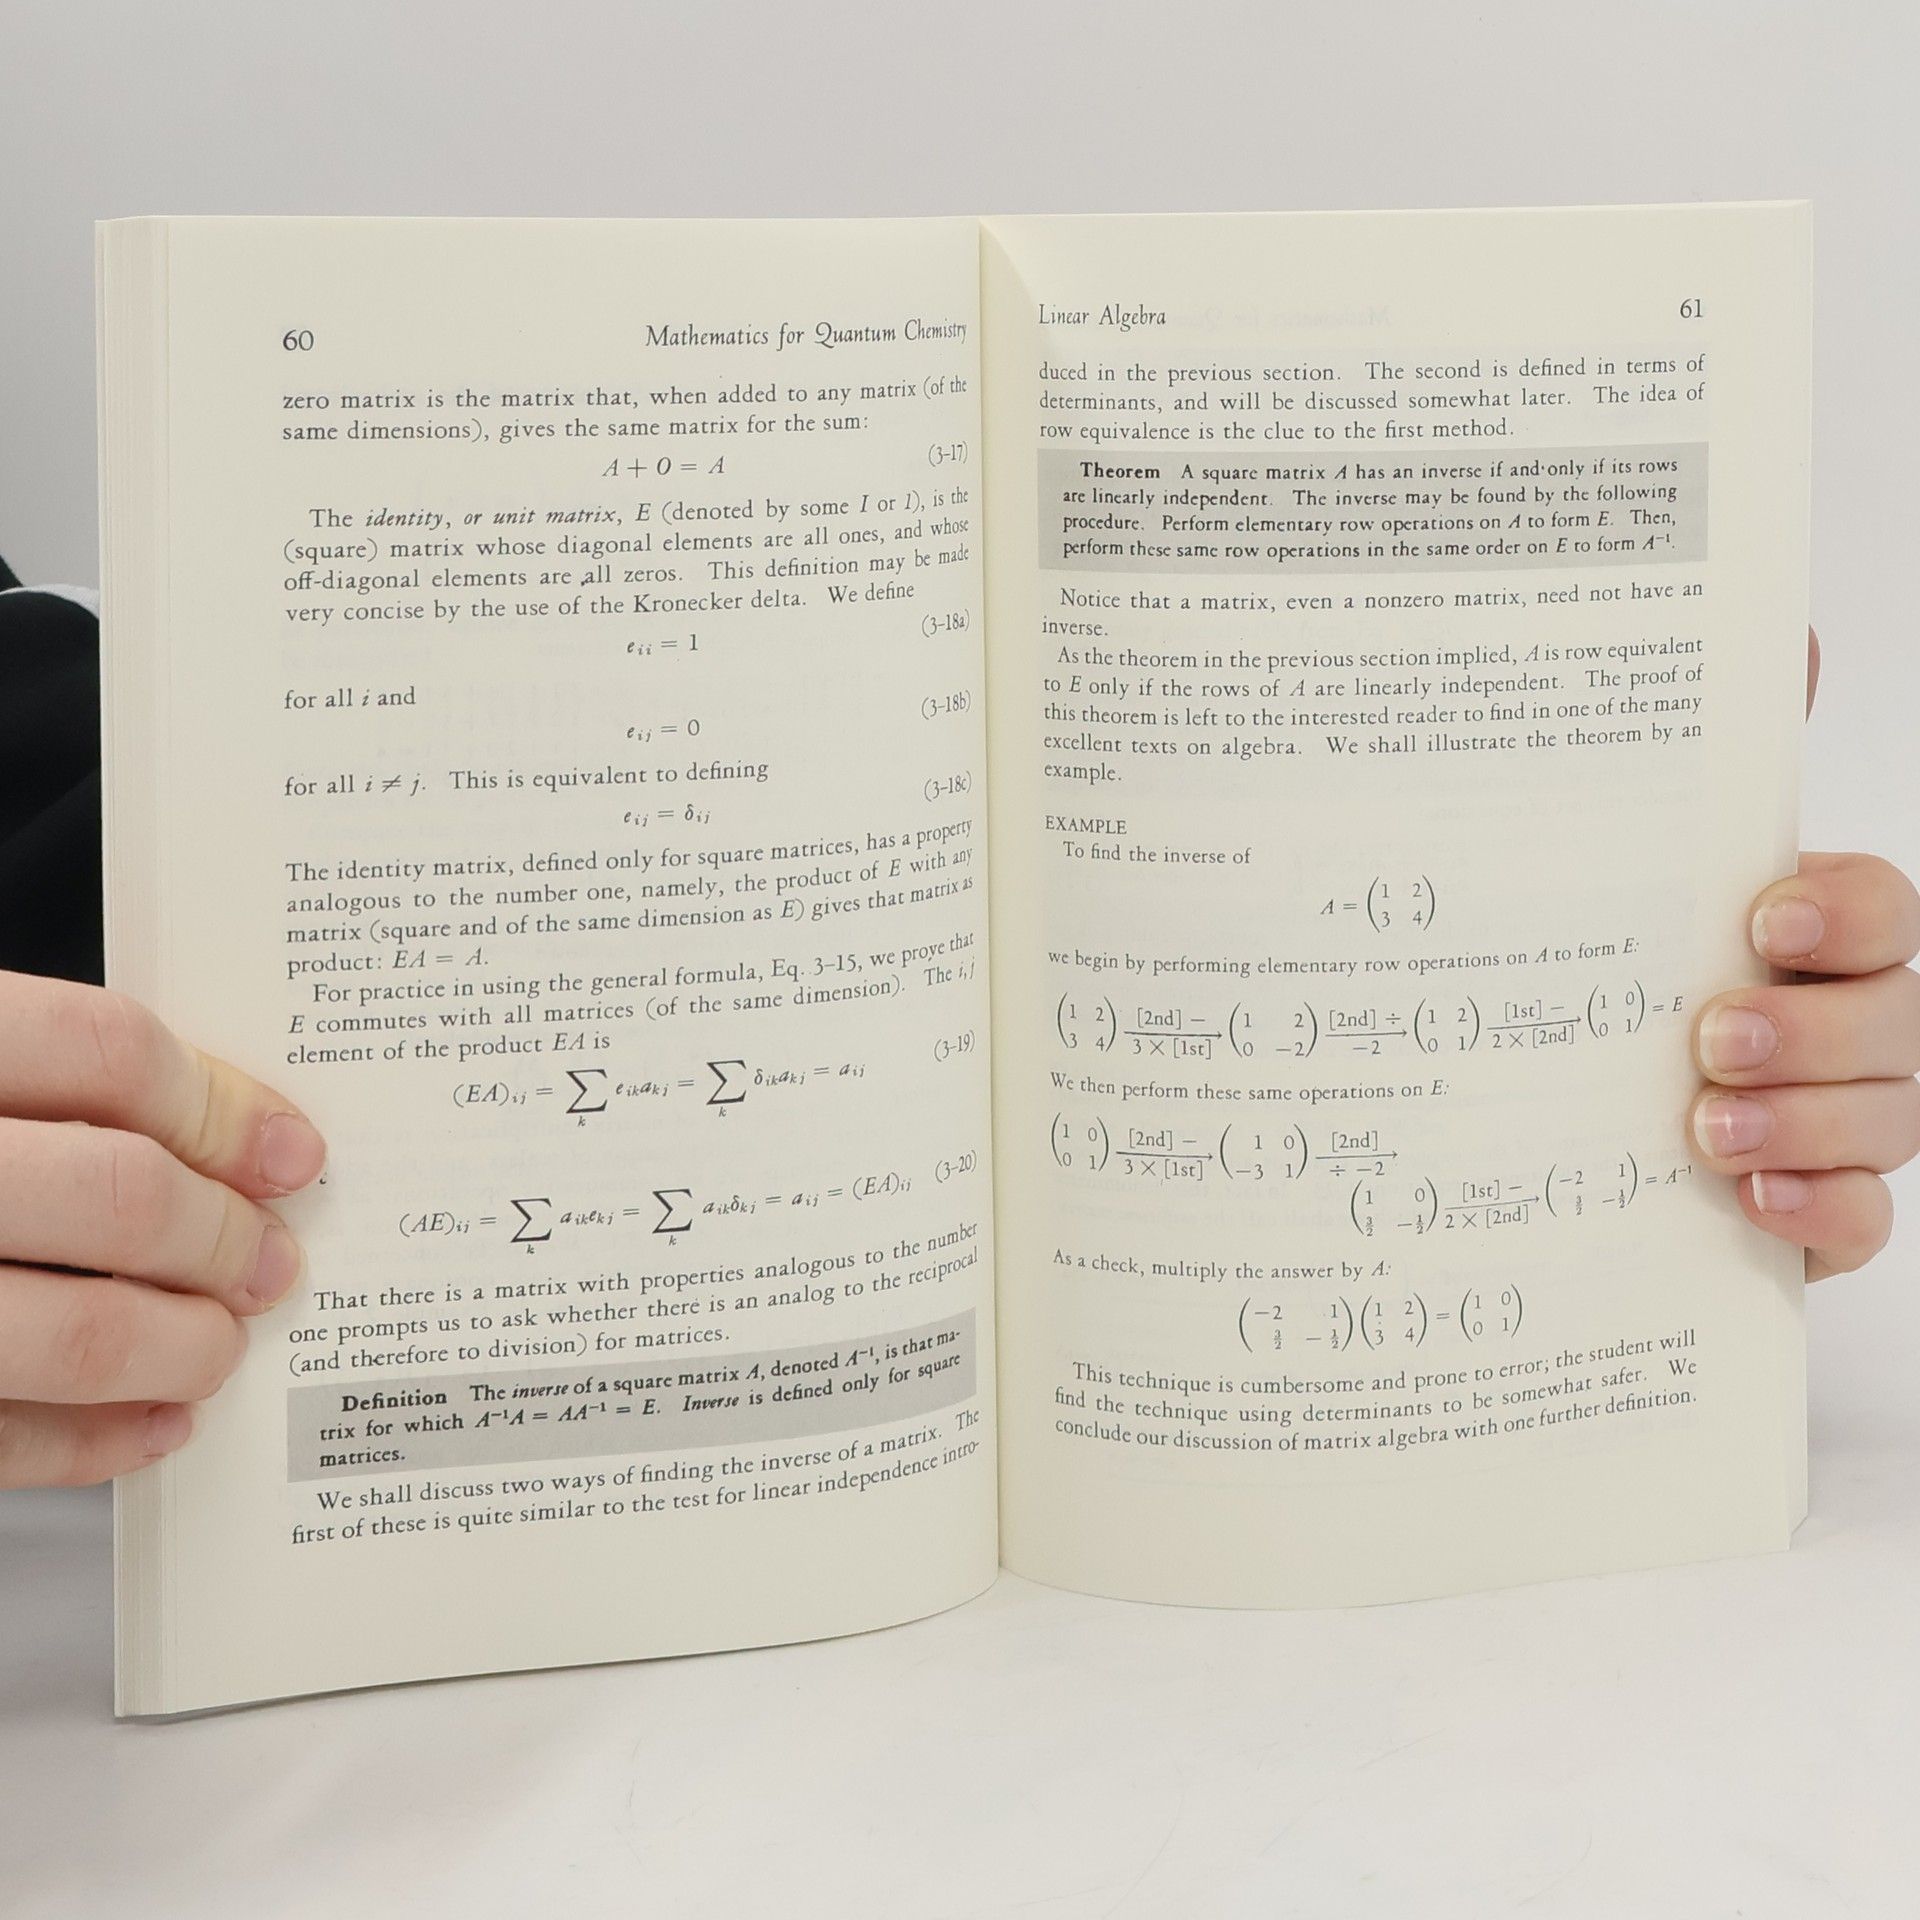 60 Mathematics for Quantum Chemistry
zero matrix is the matrix that, when added to any matrix (of the
same dimensions), gives the same matrix for the sum:
A + 0 = A (3-17)
The identity, or unit matrix, E (denoted by some I or 1), is the
(square) matrix whose diagonal elements are all ones, and whose
off-diagonal elements are all zeros. This definition may be made
very concise by the use of the Kronecker delta. We define
eᵢᵢ = 1 (3-18a)
for all i and
eᵢⱼ = 0 (3-18b)
for all i ≠ j. This is equivalent to defining
eᵢⱼ = δᵢⱼ (3-18c)
The identity matrix, defined only for square matrices, has a property
analogous to the number one, namely, the product of E with any
matrix (square and of the same dimension as E) gives that matrix as
product: EA = A.
For practice in using the general formula, Eq. 3-15, we prove that
E commutes with all matrices (of the same dimension). The i, j
element of the product EA is
(EA)ᵢⱼ = ∑ₖ eᵢₖaₖⱼ = ∑ₖ δᵢₖaₖⱼ = aᵢⱼ (3-19)
(AE)ᵢⱼ = ∑ₖ aᵢₖeₖⱼ = ∑ₖ aᵢₖδₖⱼ = aᵢⱼ = (EA)ᵢⱼ (3-20)
That there is a matrix with properties analogous to the number
one prompts us to ask whether there is an analog to the reciprocal
(and therefore to division) for matrices.
Definition The inverse of a square matrix A, denoted A⁻¹, is that ma-
trix for which A⁻¹A = AA⁻¹ = E. Inverse is defined only for square
matrices.
We shall discuss two ways of finding the inverse of a matrix. The
first of these is quite similar to the test for linear independence intro-
Linear Algebra 61
duced in the previous section. The second is defined in terms of
determinants, and will be discussed somewhat later. The idea of
row equivalence is the clue to the first method.
Theorem A square matrix A has an inverse if and only if its rows
are linearly independent. The inverse may be found by the following
procedure. Perform elementary row operations on A to form E. Then,
perform these same row operations in the same order on E to form A⁻¹.
Notice that a matrix, even a nonzero matrix, need not have an
inverse.
As the theorem in the previous section implied, A is row equivalent
to E only if the rows of A are linearly independent. The proof of
this theorem is left to the interested reader to find in one of the many
excellent texts on algebra. We shall illustrate the theorem by an
example.
EXAMPLE
To find the inverse of
A = (1 2
3 4)
we begin by performing elementary row operations on A to form E:
(1 2 [2nd] − (1 2) [2nd] ÷ (1 2) [1st] − (1 0) = E
3 4) 3 × [1st] 0 −2) −2 0 1) 2 × [2nd] 0 1)
We then perform these same operations on E:
(1 0) [2nd] − (1 0) [2nd]
0 1) 3 × [1st] −3 1) ÷ −2
(1 0) [1st] − (−2 1) = A⁻¹
3/2 −1/2) 2 × [2nd] 3/2 −1/2)
As a check, multiply the answer by A:
(−2 1) (1 2) = (1 0)
3/2 −1/2) 3 4) 0 1)
This technique is cumbersome and prone to error; the student will
find the technique using determinants to be somewhat safer. We
conclude our discussion of matrix algebra with one further definition.